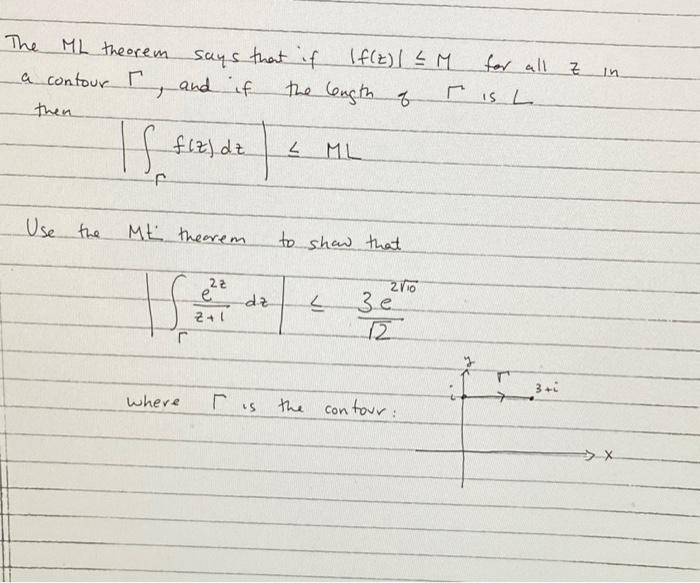 The ML theorem says that if |f(z)| ≤ M for all z in
a contour Γ, and if the length of Γ is L
then
|∫_Γ f(z) dz| ≤ ML
Use the ML theorem to show that
|∫_Γ e^{2z}/(z+1) dz| ≤ 3e^{2√10}/√2
where Γ is the contour:
y
i Γ 3+i
x